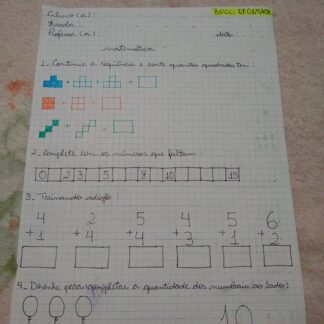 Aluno (a):
BNCC: EF01MA08
Escola:
Professor (a): data:
matemática
1- Continue a sequência e conte quantos quadrados tem:
+ + =
+ =
+ =
2- Complete com os números que faltam:
0 2 3 5 8 10 15
3- Treinando adição:
4 2 5 4 5 6
+1 +4 +4 +3 +1 +2
4- Desenhe para completar a quantidade dos numerais ao lado:
10